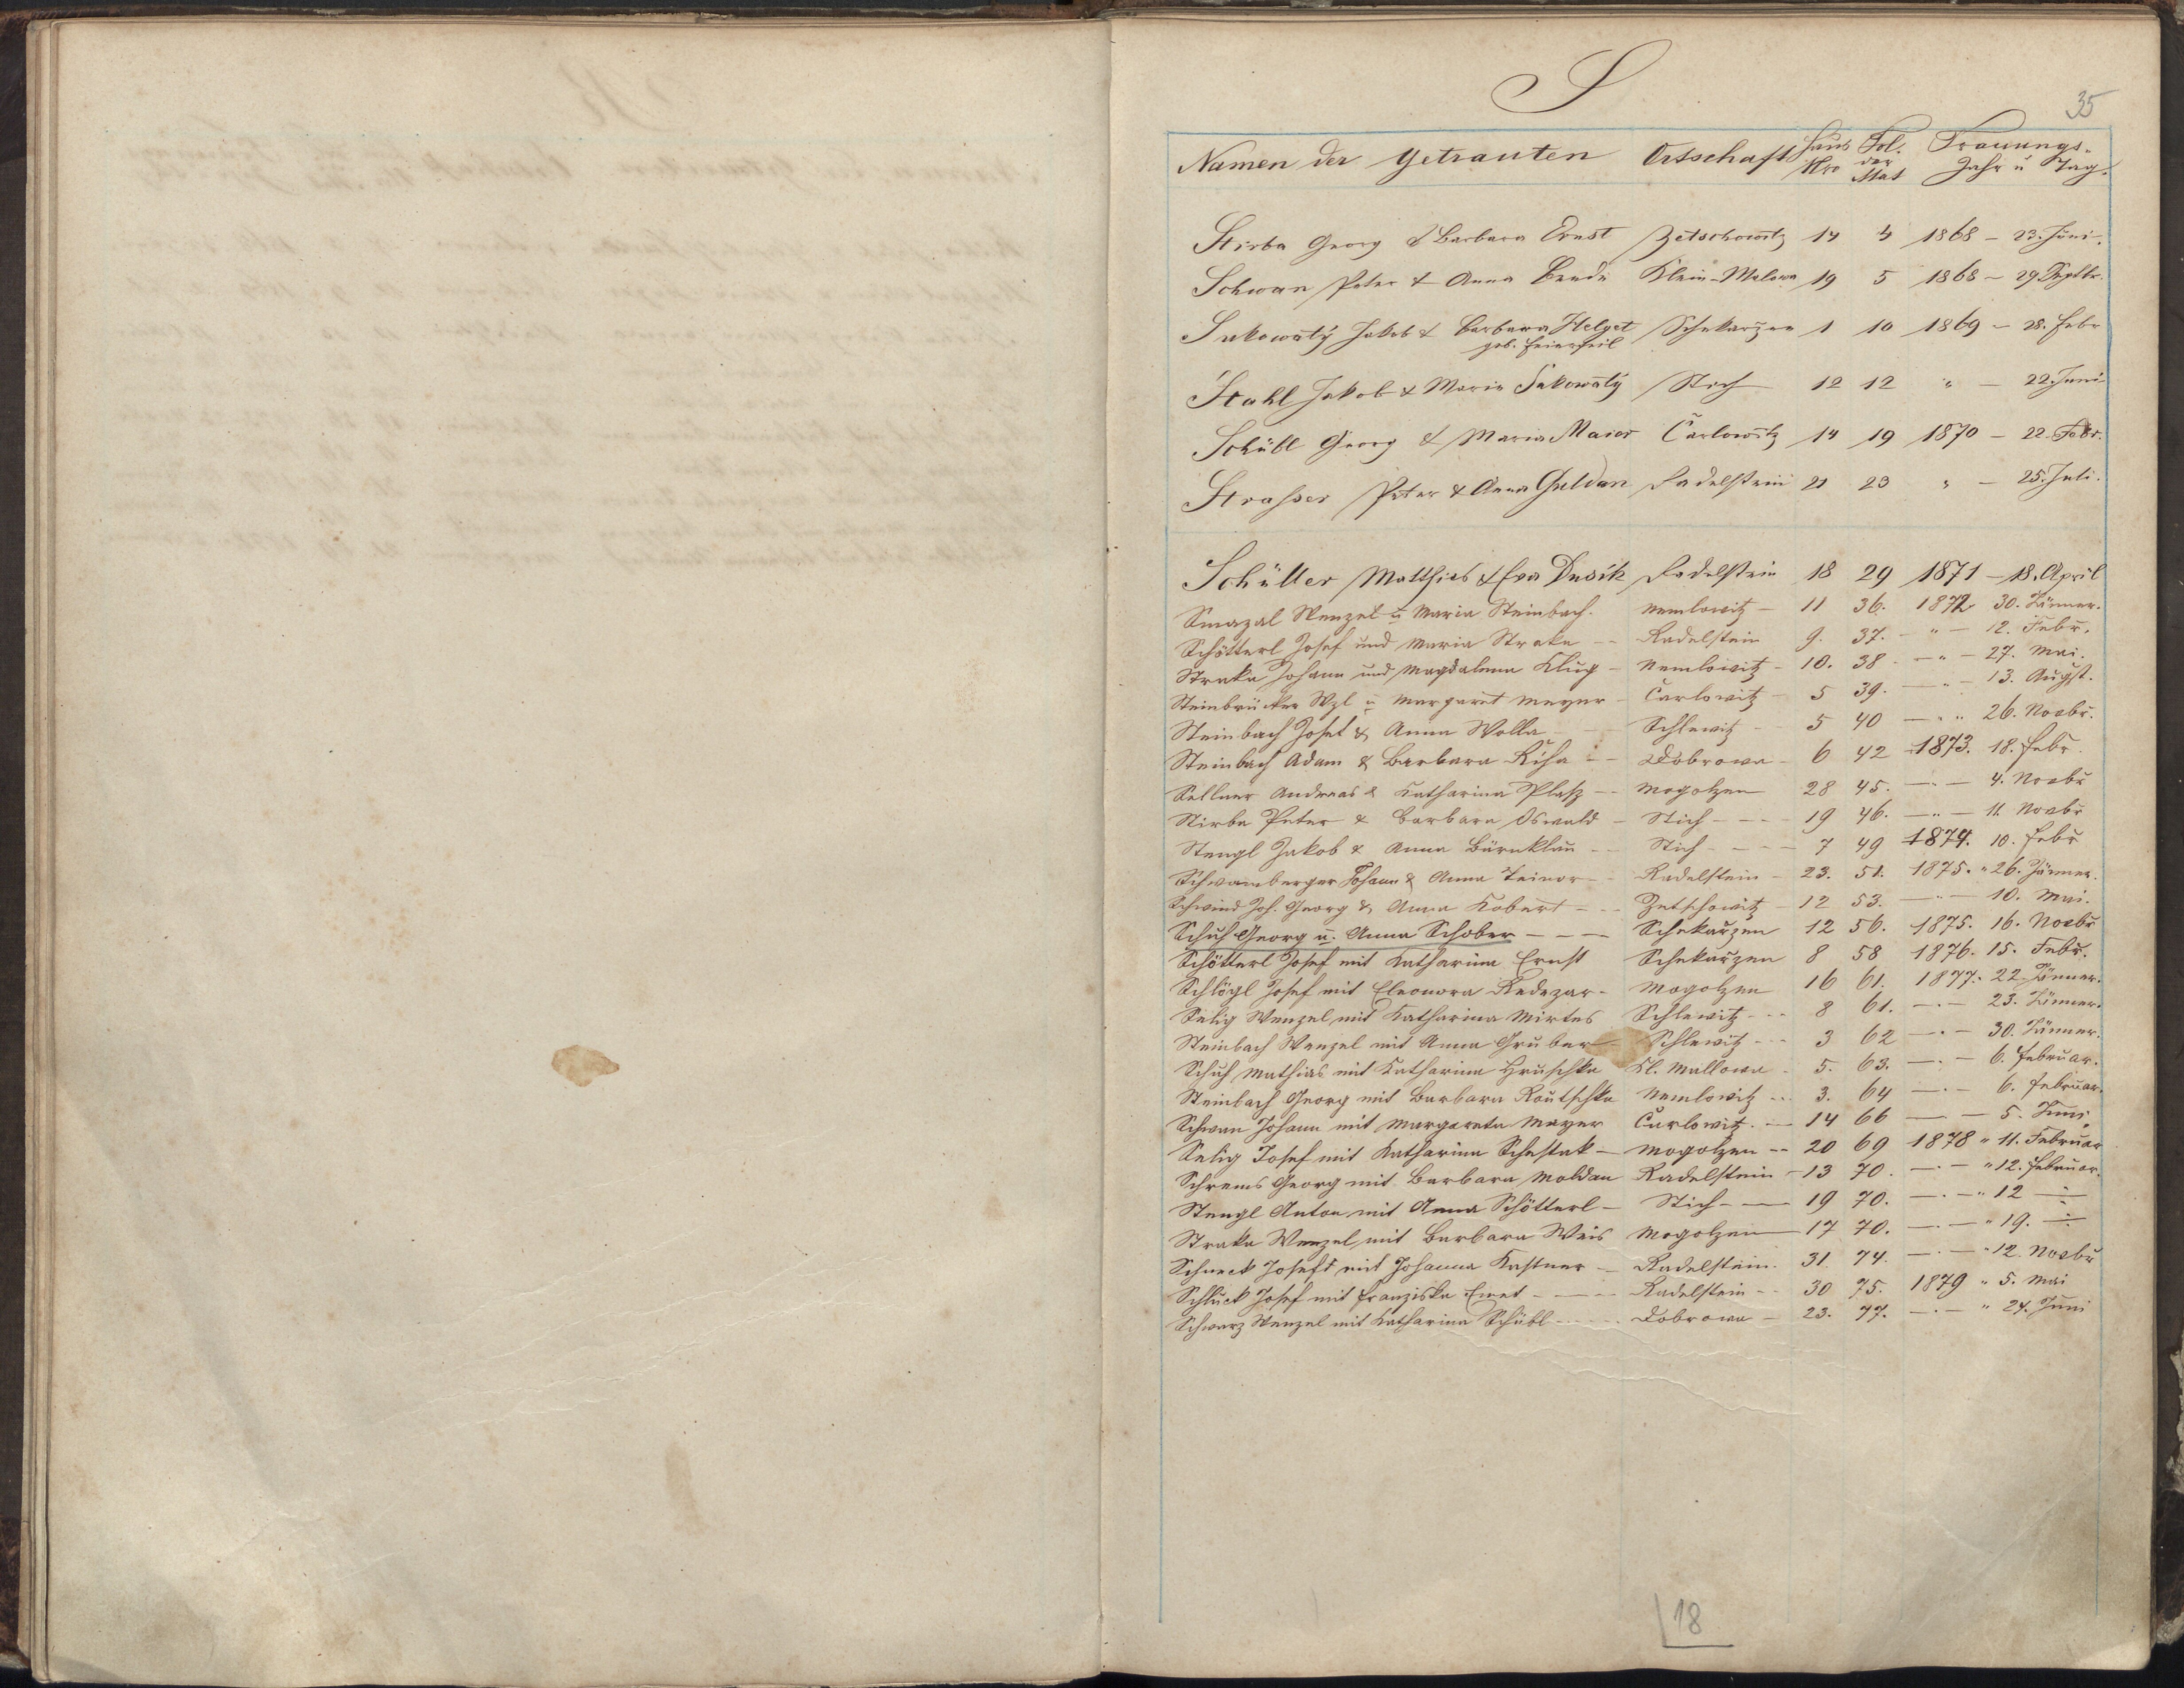 S
35
Namen der Getrauten Ortschaft Haus Nro Fol. der Mat Trauungs- Jahr u Tag.
Stirba Georg & Barbara Ernst Zetschowitz 14 4 1868 – 23. Juni.
Schwan Peter & Anna Klein-Malowa 19 5 1868 – 29 Septbr.
Sukowatÿ Jakob & Barbara Helget Schekarzen 1 10 1869 – 28. Febr
geb. Feierfeil
Stahl Jakob & Maria Sukowatÿ Stich 12 12 " – 22. Juni
Schübl Georg & Maria Maier Čarlowitz 14 19 1870 – 22. Febr.
Strasser Peter & Anna Guldan Radelstein 21 23 " – 25. Juli.
Schüller Matthias & Eva Dusik Radelstein 18 29 1871 – 18. April
Smazal Wenzel u Maria Steinbach. Nemlowitz – 11 36. 1872 30. Jänner.
Schötterl Josef und Maria Straka – – Radelstein 9. 37. – " – 12. Febr.
Straka Johann und Magdalena Klug – Nemlowitz – 10. 38 – " – 27. Mai.
Steinbrücker Wzl u Margaret Meyer – Čarlowitz – 5 39. – " – 13. Augst.
Steinbach Josef & Anna Wolla – – Schlewitz – 5 40 – " " 26. Novbr.
Steinbach Adam & Barbara Řiha – – Dobrowa – 6 42 1873. 18. Febr.
Sellner Andreas & Katharina Plass – – Mogolzen 28 45. – " – 4. Novbr
Stirba Peter & Barbara Oswald – Stich – – – 19 46. – " – 11. Novbr
Stengl Jakob & Anna Bärnklau – – Stich – – – 7 49 1874. 10. Febr
Schwamberger Johann & Anna – – Radelstein – 23. 51. 1875. " 26. Jänner.
Schwind Joh. Georg & Anna Kobert – – Zetschowitz – 12 53. – " – 10. Mai.
Schuh Georg u. Anna Schober – – – Schekarzen 12 56. 1875. 16. Novbr
Schötterl Josef mit Katharina Ernst Schekarzen 8 58 1876. 15. Febr.
Schlögl Josef mit Eleonora – Mogolzen 16 61. 1877. 22. Jänner.
Selig Wenzel mit Katharina Mirtes Schlewitz – – 8 61. – . – 23. Jänner.
Steinbach Wenzel mit Anna Gruber – Schlewitz – – 3 62 – . – 30. Jänner.
Schuh Mathias mit Katharina Hruschka Kl. Mallowa – 5. 63. – . – 6. Februar.
Steinbach Georg mit Barbara Routschka Nemlowitz – – 3. 64 – . – 6. Februar.
Schwan Johann mit Margareta Mayer Čarlowitz. – 14 66 – – 5. Juni
Selig Josef mit Katharina Schestak – Mogolzen – – 20 69 1878 " 11. Februar
Schrems Georg mit Barbara Moldan Radelstein – 13 70. – . – " 12. Februar.
Stengl Anton mit Anna Schötterl – Stich – – 19 70. – . – " 12 –
Straka Wenzel mit Barbara Weis Mogolzen – 17 70. – . – " 19. –
Schneck Josef mit Johanna Kastner – Radelstein. 31. 74. – . – " 12. Novbr
Schluck Josef mit Franziska – – – Radelstein – – 30 75. 1879 " 5. Mai
Schwarz Wenzel mit Katharina Schübl – – – Dobrowa – 23. 77. – . – " 24. Juni
18